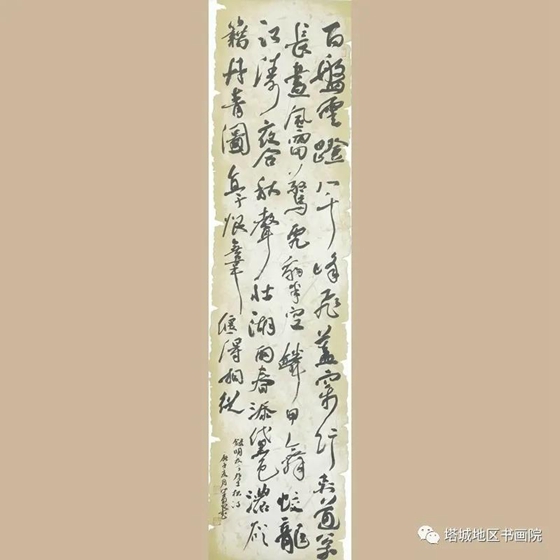 百盤雲蹬八千峰飛蓋穿行夾道
長晝風雷驚虎豹半空鱗甲舞蛟龍
江濤夜合秋聲壯湖雨春添黛色濃願
籍丹青圖恨無韋偃得相從
松詩
庚子夏月
塔城地区书画院